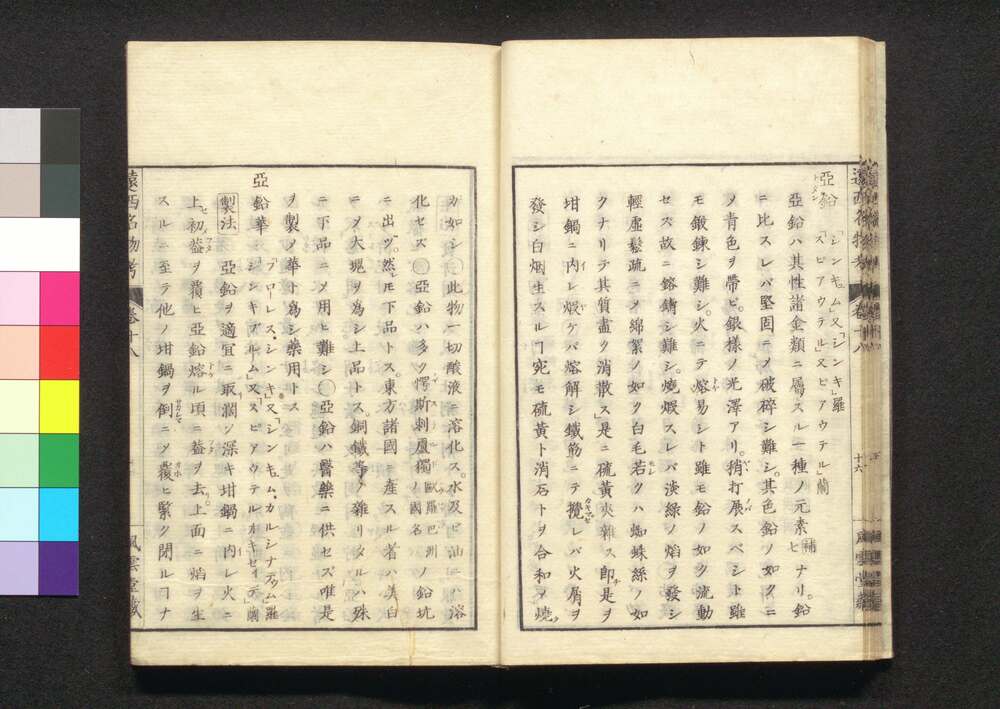 遠西名物考 卷十八 十六 風雲堂藏
亞鉛 「シンキュム」又「シンキ」羅「スピアウテル」又ピアウテル」蘭
亞鉛ハ其性諸金類ニ屬スル一種ノ元素補ヒナリ。鉛
ニ比スレバ堅固ニメ破碎シ難シ。其色鉛ノ如クニ
ノ青色ヲ帶ビ。銀樣ノ光澤アリ。稍打展スベシト雖
モ鍛錬シ難シ。火ニテ熔易シト雖モ鉛ノ如ク流動
セス故ニ鎔鑄シ難シ。燒煆スレバ淡綠ノ焰ヲ發シ
輕虛鬆疏ニメ綿絮ノ如ク白毛若クハ蜘蛛絲ノ如
クナリテ其質盡ク消散ス」是ニ硫黃夾雜ス卽是ヲ
坩鍋ニ內レ煆ケバ熔解シ鐵筋ニテ攪レバ火屑ヲ
發シ白烟生スルヿ宛モ硫黃ト消石トヲ合和メ燒
カ如シ○此物一切酸液ニ溶化ス。水及ビ油ニハ溶
化セズ○亞鉛ハ多ク愕斯刺盧獨歐羅巴洲ノ國名ノ鉛坑
ニ出ヅ。然レモ下品トス。東方諸國ニ產スル者ハ美白
ニメ大塊ヲ爲シ上品トス。銅鐵等ノ雜リタルハ殊
ニ下品ニメ用ヒ難シ○亞鉛ハ醫藥ニ供セズ唯是
ヲ製メ華ト爲シ藥用トス
亞鉛華 「フローレス・シンキ」又シンキュム、カルシナテュム羅「シンキブルム」又スピアウテルカキセイデ」蘭
製法 亞鉛ヲ適宜ニ取濶ソ深キ坩鍋ニ內レ火ニ
上セ初葢ヲ覆ヒ亞鉛熔ル頃ニ葢ヲ去リ上面ニ焰ヲ生
スルニ至ラ他ノ坩鍋ヲ倒ニメ覆ヒ緊ク閉ルヿナ
遠西名物考 卷十八 風雲堂藏